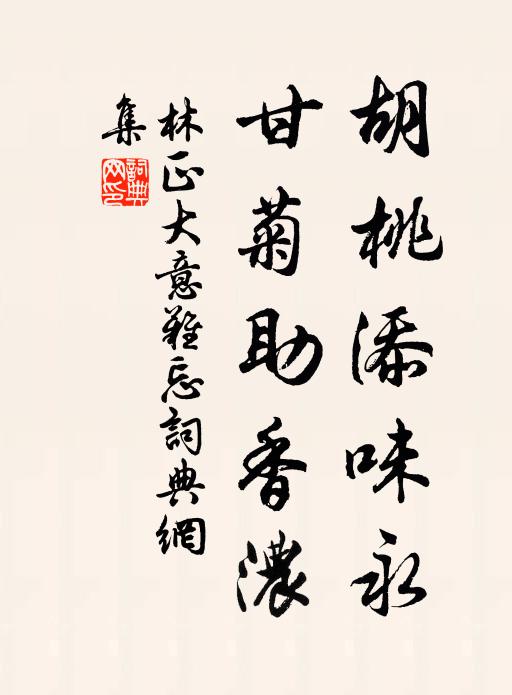 胡桃添味永
甘菊助香濃
林正大意難忘詞典網
集
詞典網印